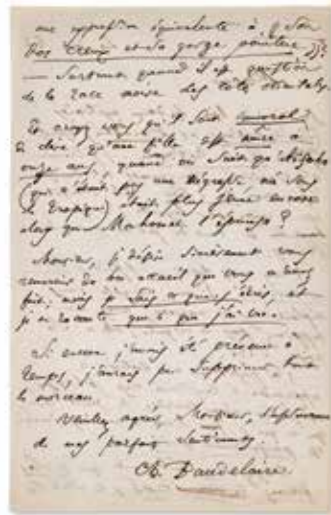 une expression équivalente à : Son
dos creux et sa gorge pointue,
— Surtout quand il est question
de la race noire des côtes orientales.
Et croyez vous qu'il soit immoral
de dire qu'une fille est mûre à
onze ans, quand on sait qu'Aïscha
(qui n'était pas une négresse née sous
le Tropique) était plus jeune encore
alors que Mahomet l'épousa ?
Monsieur, je désire sincèrement vous
remercier du bon accueil que vous m'avez
fait ; mais je sais ce que j'écris, et
je ne raconte que ce que j'ai vu.
Si encore j'avais été prévenu à
temps, j'aurais pu supprimer tout
le morceau.
Veuillez agréer, Monsieur, l'assurance
de mes parfaits sentiments.
Ch. Baudelaire.